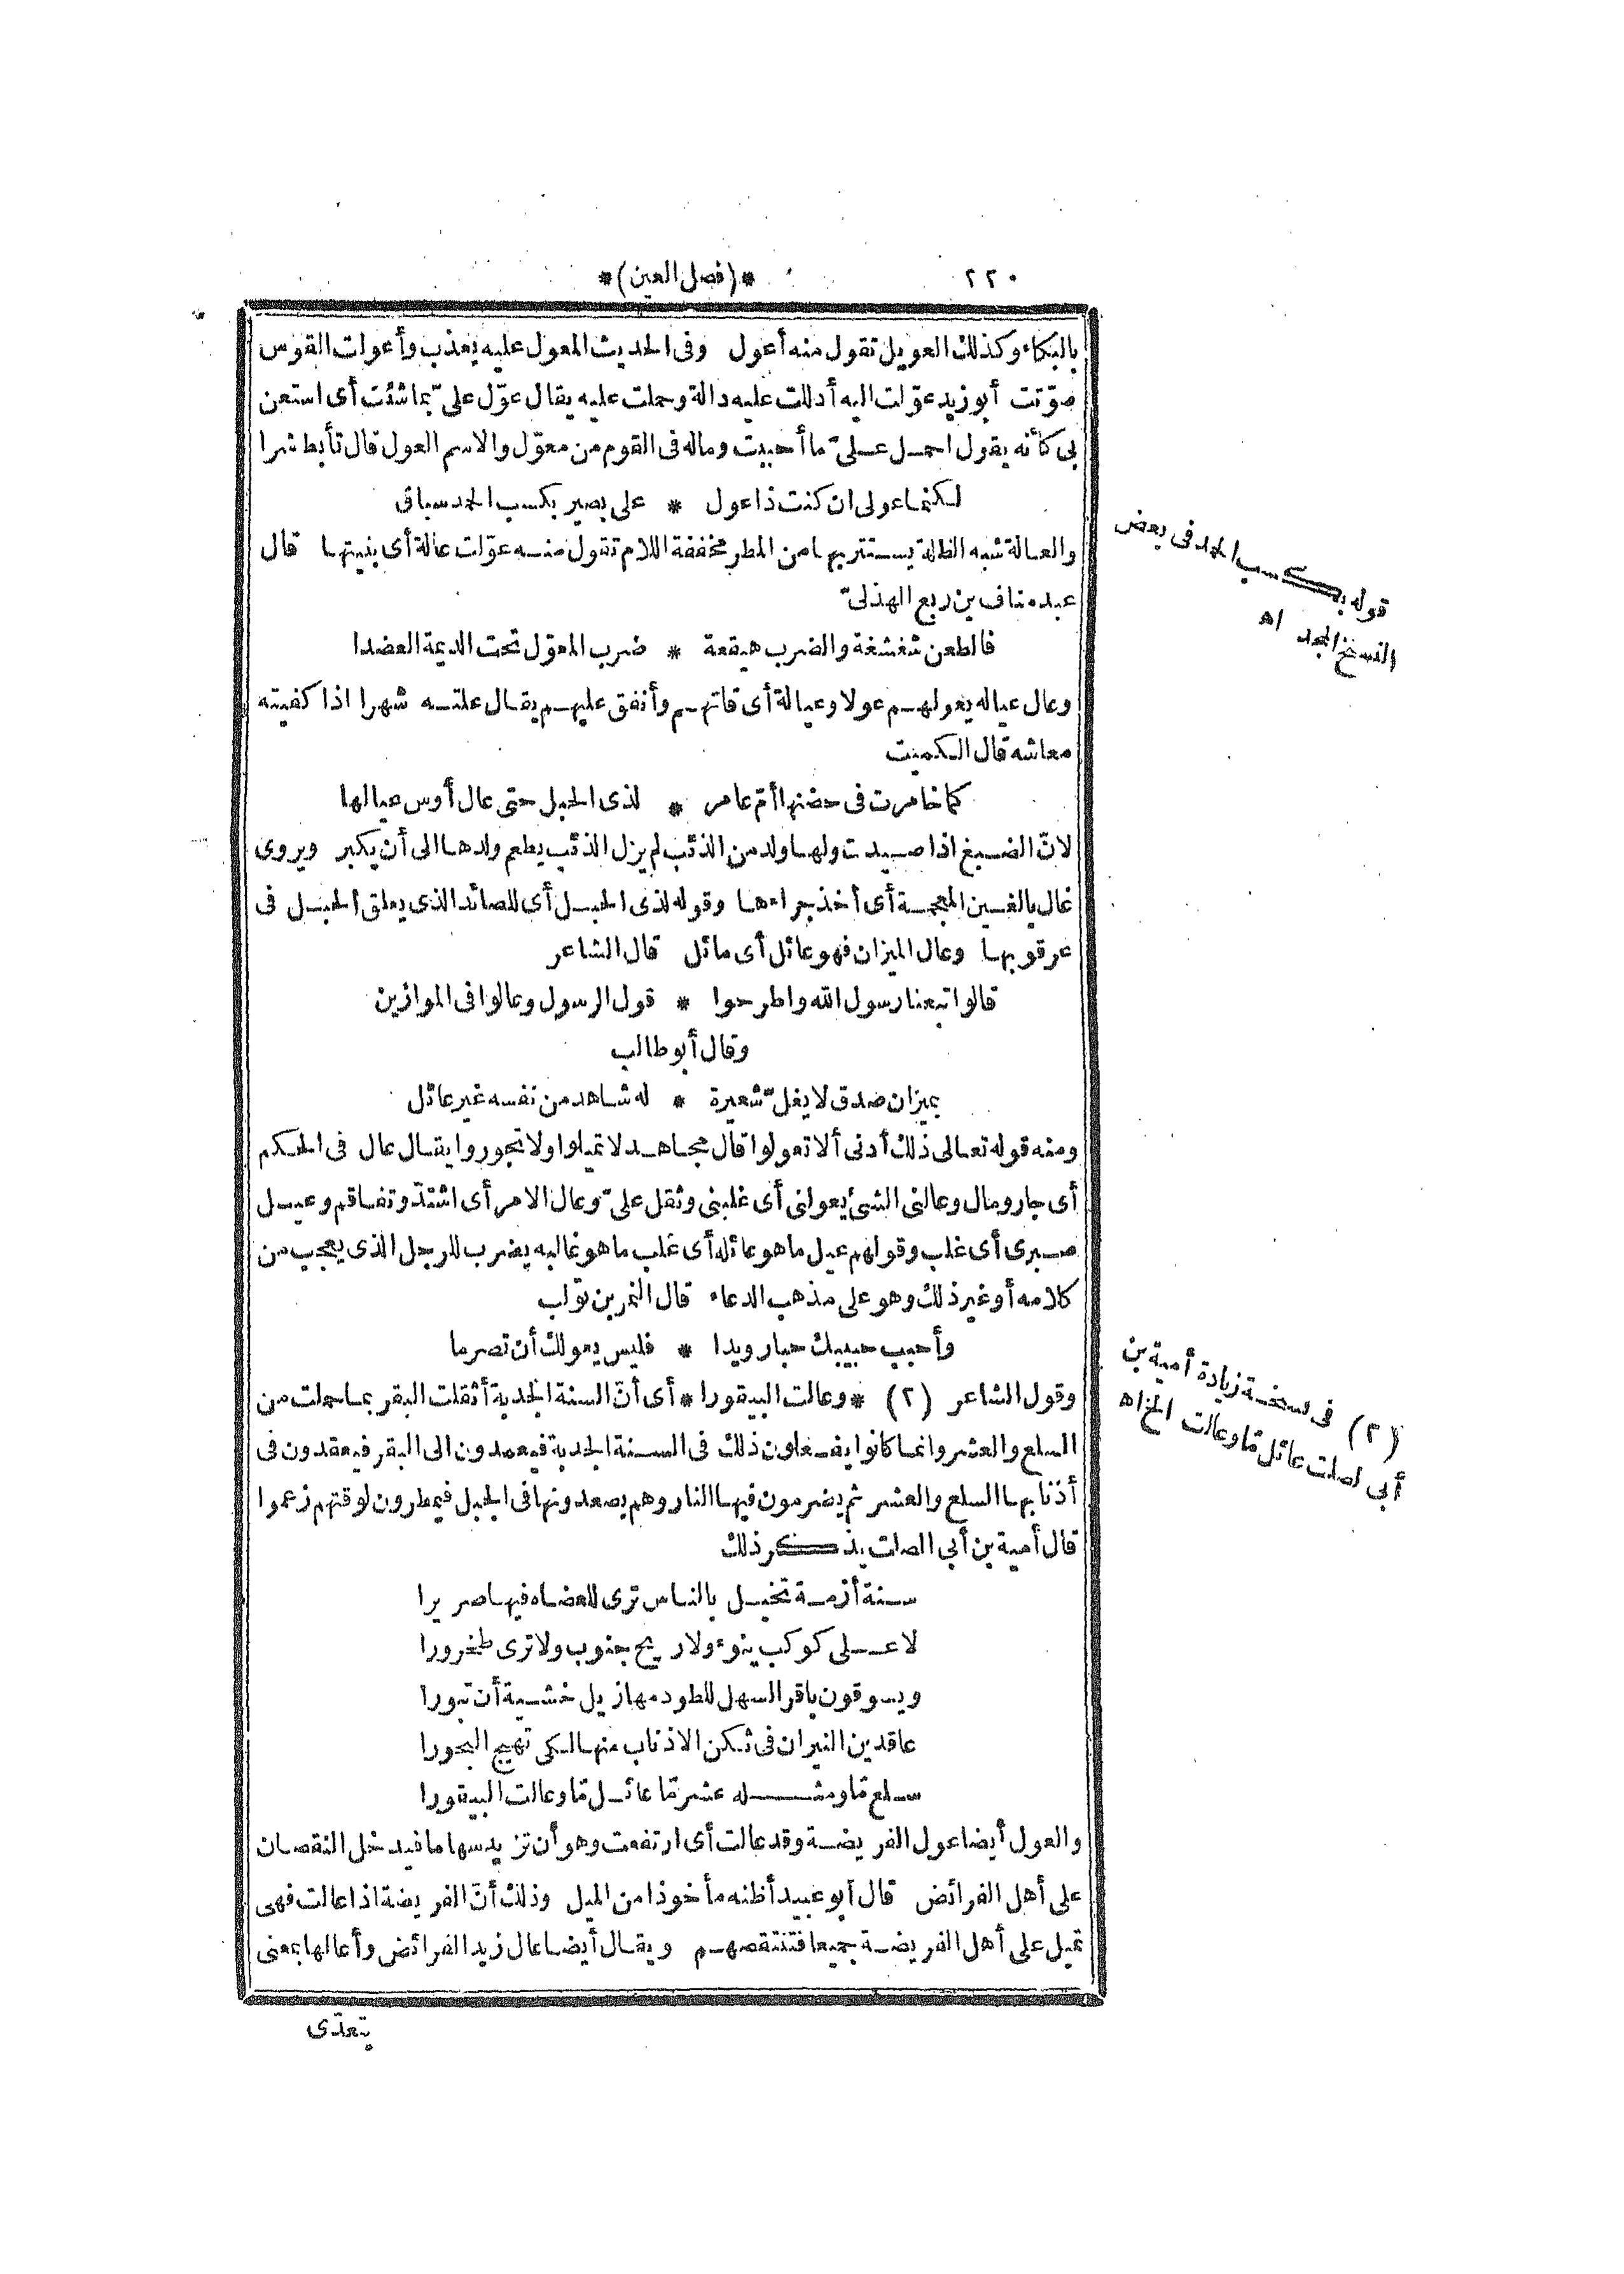 ٢٢٠
*(فصل العين)*
بالبكاء وكذلك العويل تقول منه أعول وفى الحديث المعول عليه يعذب وأعولت القوس
صوّتت أبو زيد عوّلت اليه أدللت عليه دالة وحملت عليه يقال عوّل علىّ بما شئت أى استعن
بى كأنه يقول احمل علىّ ما أحببت وماله فى القوم من معوّل والاسم العول قال تأبط شرا
لكنما عولى ان كنت ذا عول * على بصير بكسب الحمد سباق
والعالة شبه الظلة يستتر بها من المطر مخففة اللام تقول منه عوّلت عالة أى بنيتها قال
عبد مناف بن ربع الهذلىّ
فالطعن شغشغة والضرب هيقعة * ضرب المعوّل تحت الديمة العضدا
وعال عياله يعولهم عولا وعيالة أى قاتهم وأنفق عليهم يقال علته شهرا اذا كفيته
معاشه قال الكميت
كما خامرت فى حضنها أمّ عامر * لذى الحبل حتى عال أوس عيالها
لانّ الضبع اذا صيدت ولها ولد من الذئب لم يزل الذئب يطعم ولدها الى أن يكبر ويروى
غال بالغين المعجمة أى أخذ جراءها وقوله لذى الحبل أى للصائد الذى يعلق الحبل فى
عرقوبها وعال الميزان فهو عائل أى مائل قال الشاعر
قالوا تبعنا رسول الله واطرحوا * قول الرسول وعالوا فى الموازين
وقال أبو طالب
بميزان صدق لا يغلّ شعيرة * له شاهد من نفسه غير عائل
ومنه قوله تعالى ذلك أدنى ألا تعولوا قال مجاهد لا تميلوا ولا تجوروا يقال عال فى الحكم
أى جار ومال وعالنى الشئ يعولنى أى غلبنى وثقل علىّ وعال الامر أى اشتدّ وتفاقم وعيل
صبرى أى غلب وقولهم عيل ما هو عائله أى غلب ما هو غالبه يضرب للرجل الذى يعجب من
كلامه أو غير ذلك وهو على مذهب الدعاء قال النمر بن تولب
وأحبب حبيبك حبا رويدا * فليس يعولك أن تصرما
وقول الشاعر (٢) * وعالت البيقورا * أى أنّ السنة الجدبة أثقلت البقر بما حملت من
السلع والعشر وانما كانوا يفعلون ذلك فى السنة الجدبة فيعمدون الى البقر فيعقدون فى
أذنابها السلع والعشر ثم يضرمون فيها النار وهم يصعدونها فى الجبل فيمطرون لوقتهم زعموا
قال أمية بن أبى الصلت يذكر ذلك
سنة أزمة تخيل بالناس ترى للعضاه فيها صريرا
لا على كوكب ينوء ولا ريح جنوب ولا ترى طخرورا
ويسوقون باقر السهل للطود مهازيل خشية أن تبورا
عاقدين النيران فى ثكن الاذناب منها لكى تهيج البحورا
سلع مّا ومثله عشر مّا عائل مّا وعالت البيقورا
والعول أيضا عول الفريضة وقد عالت أى ارتفعت وهو أن تزيد سهاما فيدخل النقصان
على أهل الفرائض قال أبو عبيد أظنه مأخوذا من الميل وذلك أنّ الفريضة اذا عالت فهى
تميل على أهل الفريضة جميعا فتنتقصهم ويقال أيضا عال زيد الفرائض وأعالها بمعنى
يتعدّى
قوله بكسب الحمد فى بعض
النسخ المجد اه
(٢) فى نسخة زيادة أمية بن
أبى الصلت عائل مّا وعالت الخ اه